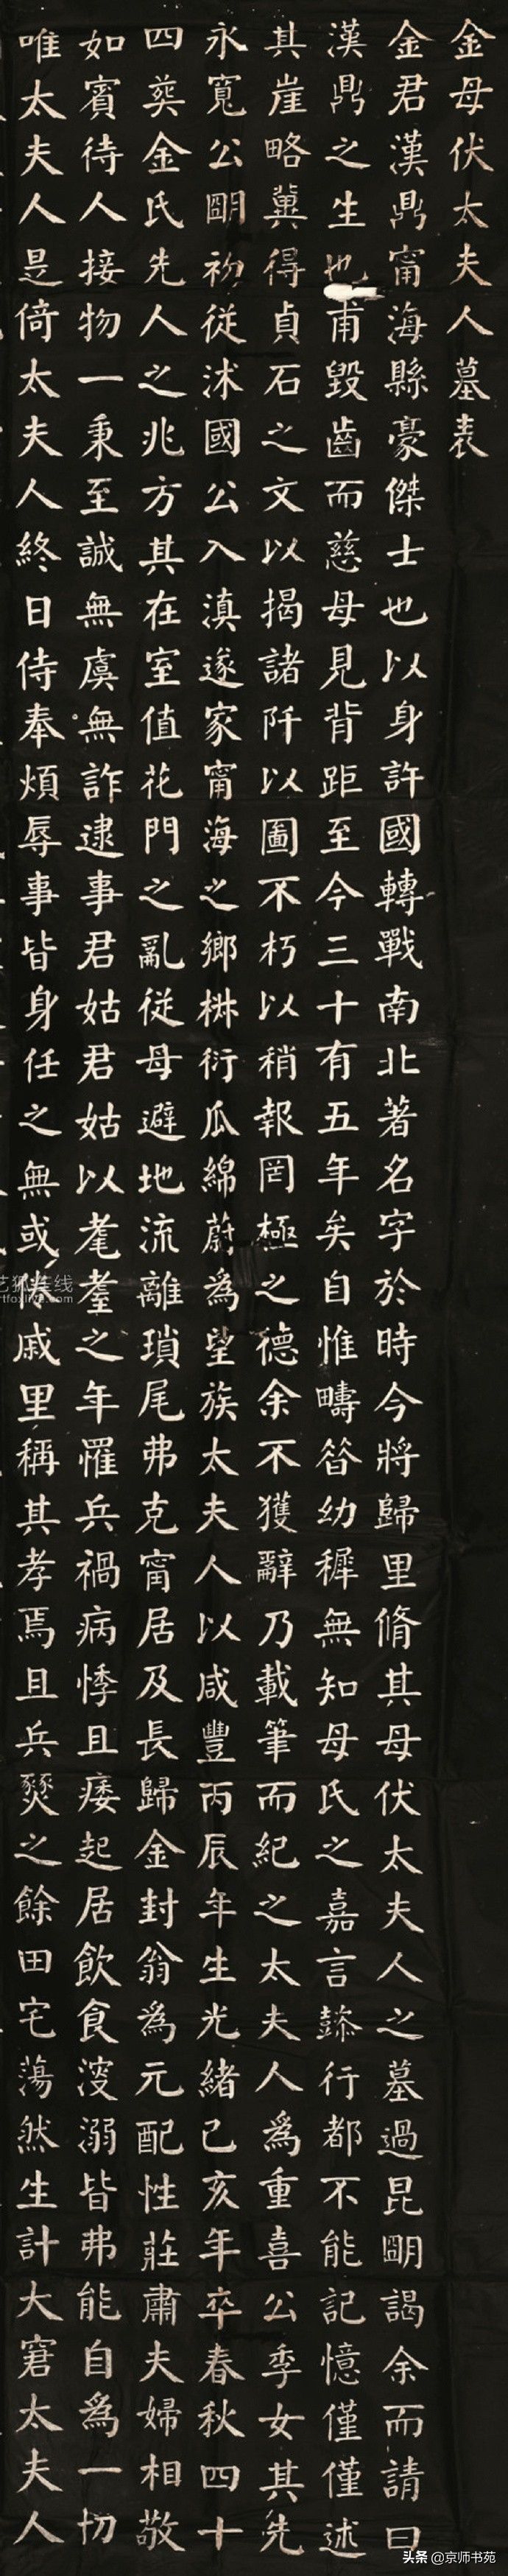 金母伏太夫人墓表
金君漢鼎甯海縣豪傑士也以身許國轉戰南北著名字於時今將歸里脩其母伏太夫人之墓過昆朙謁余而請曰
漢鼎之生也甫毀齒而慈母見背距至今三十有五年矣自惟疇昝幼穉無知母氏之嘉言懿行都不能記憶僅僅述
其崖略冀得貞石之文以揭諸阡以圖不朽以稍報罔極之德余不獲辭乃載筆而紀之太夫人為重喜公季女其先
永寬公朙初從沭國公入滇遂家甯海之鄉椒衍瓜綿蔚為望族太夫人以咸豐丙辰年生光緒己亥年卒春秋四十
四葬金氏先人之兆方其在室值花門之亂從母避地流離瑣尾弗克甯居及長歸金封翁為元配性莊肅夫婦相敬
如賓待人接物一秉至誠無虞無詐逮事君姑君姑以耄耋之年罹兵禍病悸且痿起居飲食溲溺皆弗能自為一切
唯太夫人是倚太夫人終日侍奉煩辱事皆身任之無或戚里稱其孝焉且兵燹之餘田宅蕩然生計大窘太夫人
艺狐在线
artfoxlive.com
头条 @京师书苑